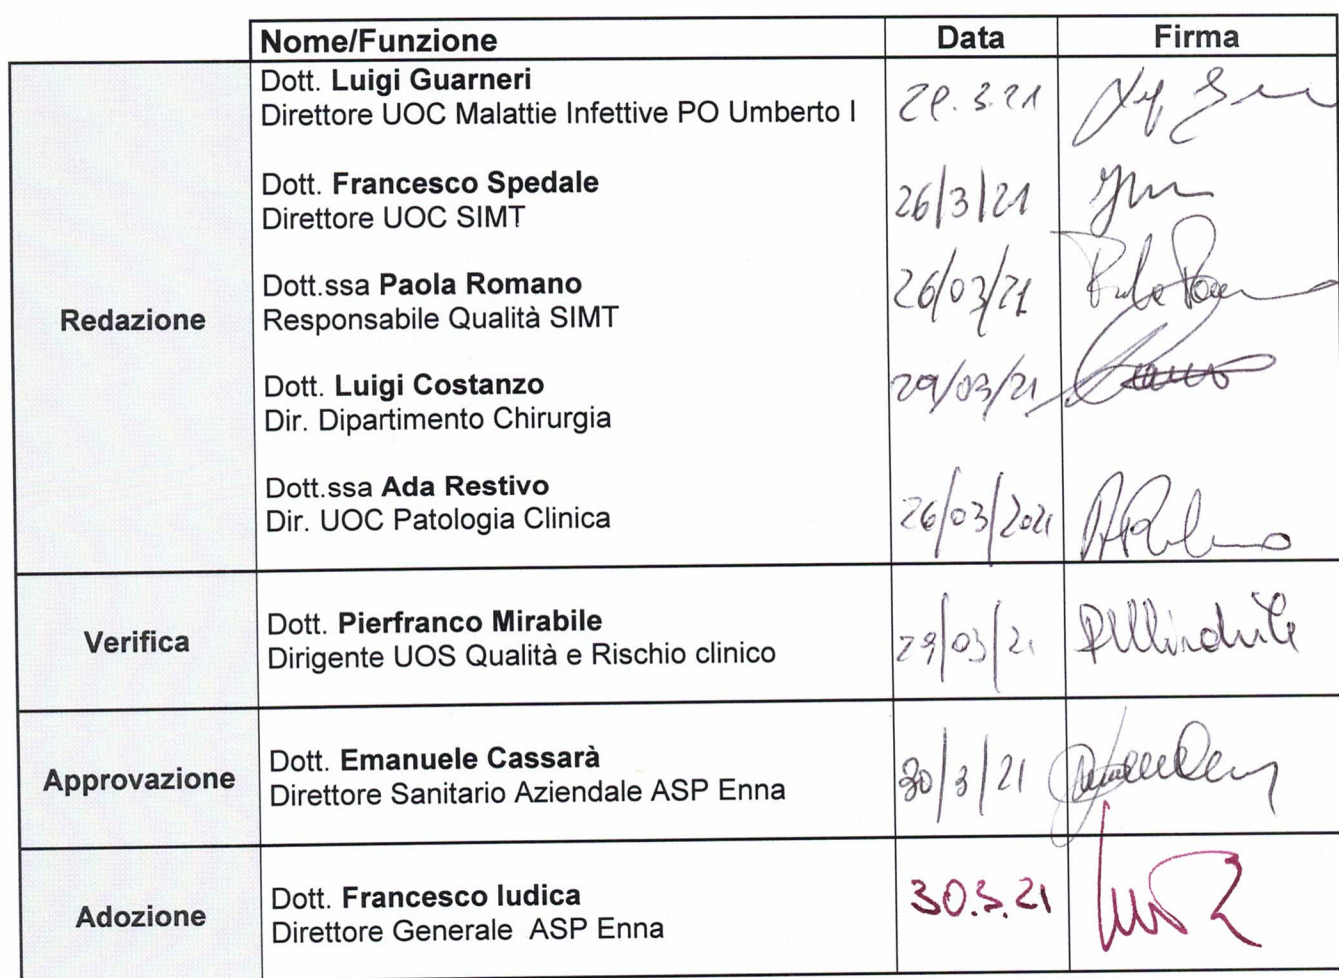 Nome/Funzione Data Firma
Redazione
Dott. Luigi Guarneri
Direttore UOC Malattie Infettive PO Umberto I
Dott. Francesco Spedale
Direttore UOC SIMT
26/3/21
Dott.ssa Paola Romano
Responsabile Qualità SIMT
26/03/21
Dott. Luigi Costanzo
Dir. Dipartimento Chirurgia
29/03/21
Dott.ssa Ada Restivo
Dir. UOC Patologia Clinica
26/03/2021
Verifica
Dott. Pierfranco Mirabile
Dirigente UOS Qualità e Rischio clinico
29/03/21
Approvazione
Dott. Emanuele Cassarà
Direttore Sanitario Aziendale ASP Enna
30/3/21
Adozione
Dott. Francesco Iudica
Direttore Generale ASP Enna
30.3.21